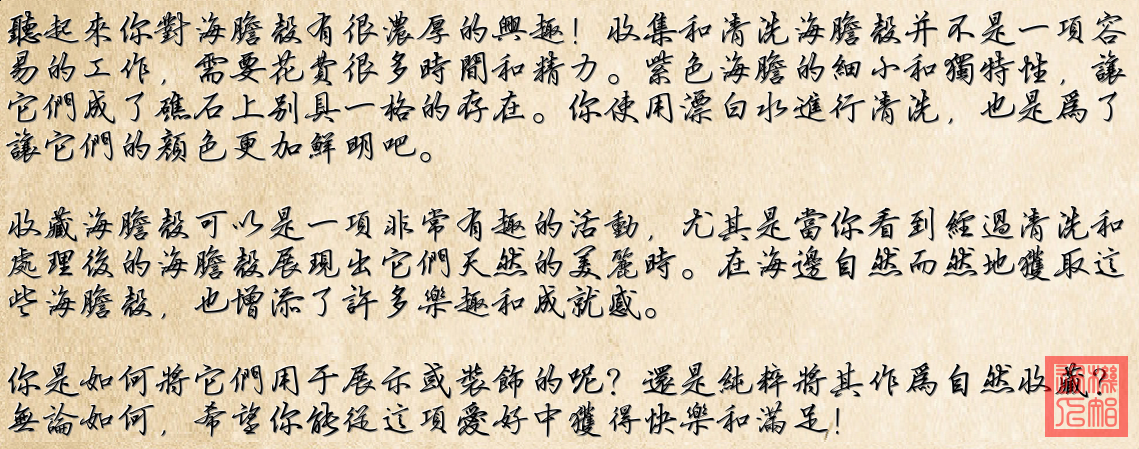 聽起來你對海膽殼有很濃厚的興趣！收集和清洗海膽殼并不是一項容
易的工作，需要花費很多時間和精力。紫色海膽的細小和獨特性，讓
它們成了礁石上別具一格的存在。你使用漂白水進行清洗，也是爲了
讓它們的顏色更加鮮明吧。
收藏海膽殼可以是一項非常有趣的活動，尤其是當你看到經過清洗和
處理後的海膽殼展現出它們天然的美麗時。在海邊自然而然地獲取這
些海膽殼，也增添了許多樂趣和成就感。
你是如何將它們用于展示或裝飾的呢？還是純粹將其作爲自然收藏？
無論如何，希望你能從這項愛好中獲得快樂和滿足！